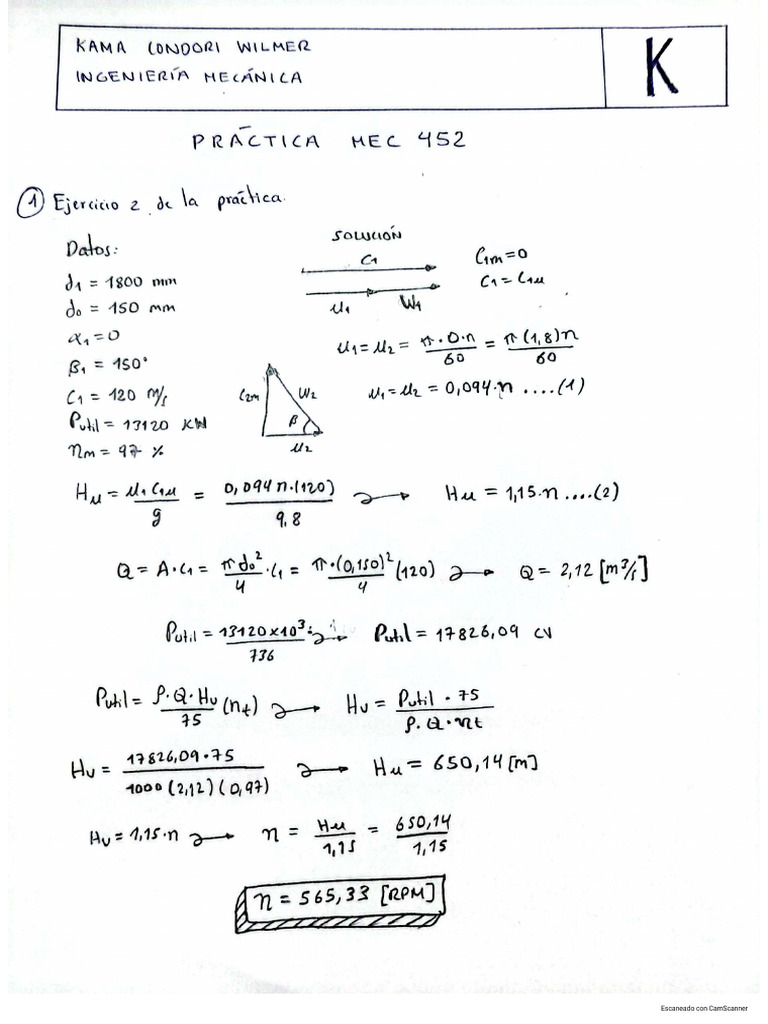 KAMA CONDORI WILMER
INGENIERÍA MECÁNICA
K
PRÁCTICA MEC 452
① Ejercicio 2 de la práctica.
Datos:
d1 = 1800 mm
d0 = 150 mm
α1 = 0
β1 = 150°
C1 = 120 m/s
Putil = 13120 KW
ηm = 97 %
SOLUCIÓN
C1
u1 W1
C1m = 0
C1 = C1u
u1 = u2 = π·D·n/60 = π(1,8)n/60
u1 = u2 = 0,094·n ....(1)
C2m W2
β
u2
Hu = u1 C1u/g = 0,094n·(120)/9,8 → Hu = 1,15·n ....(2)
Q = A·C1 = πd0²/4·C1 = π·(0,150)²/4 (120) → Q = 2,12 [m³/s]
Putil = 13120x10³/736 → Putil = 17826,09 CV
Putil = ρ·Q·Hu/75 (ηt) → Hu = Putil · 75/ρ·Q·ηt
Hu = 17826,09·75/1000(2,12)(0,97) → Hu = 650,14 [m]
Hu = 1,15·n → n = Hu/1,15 = 650,14/1,15
n = 565,33 [RPM]
Escaneado con CamScanner